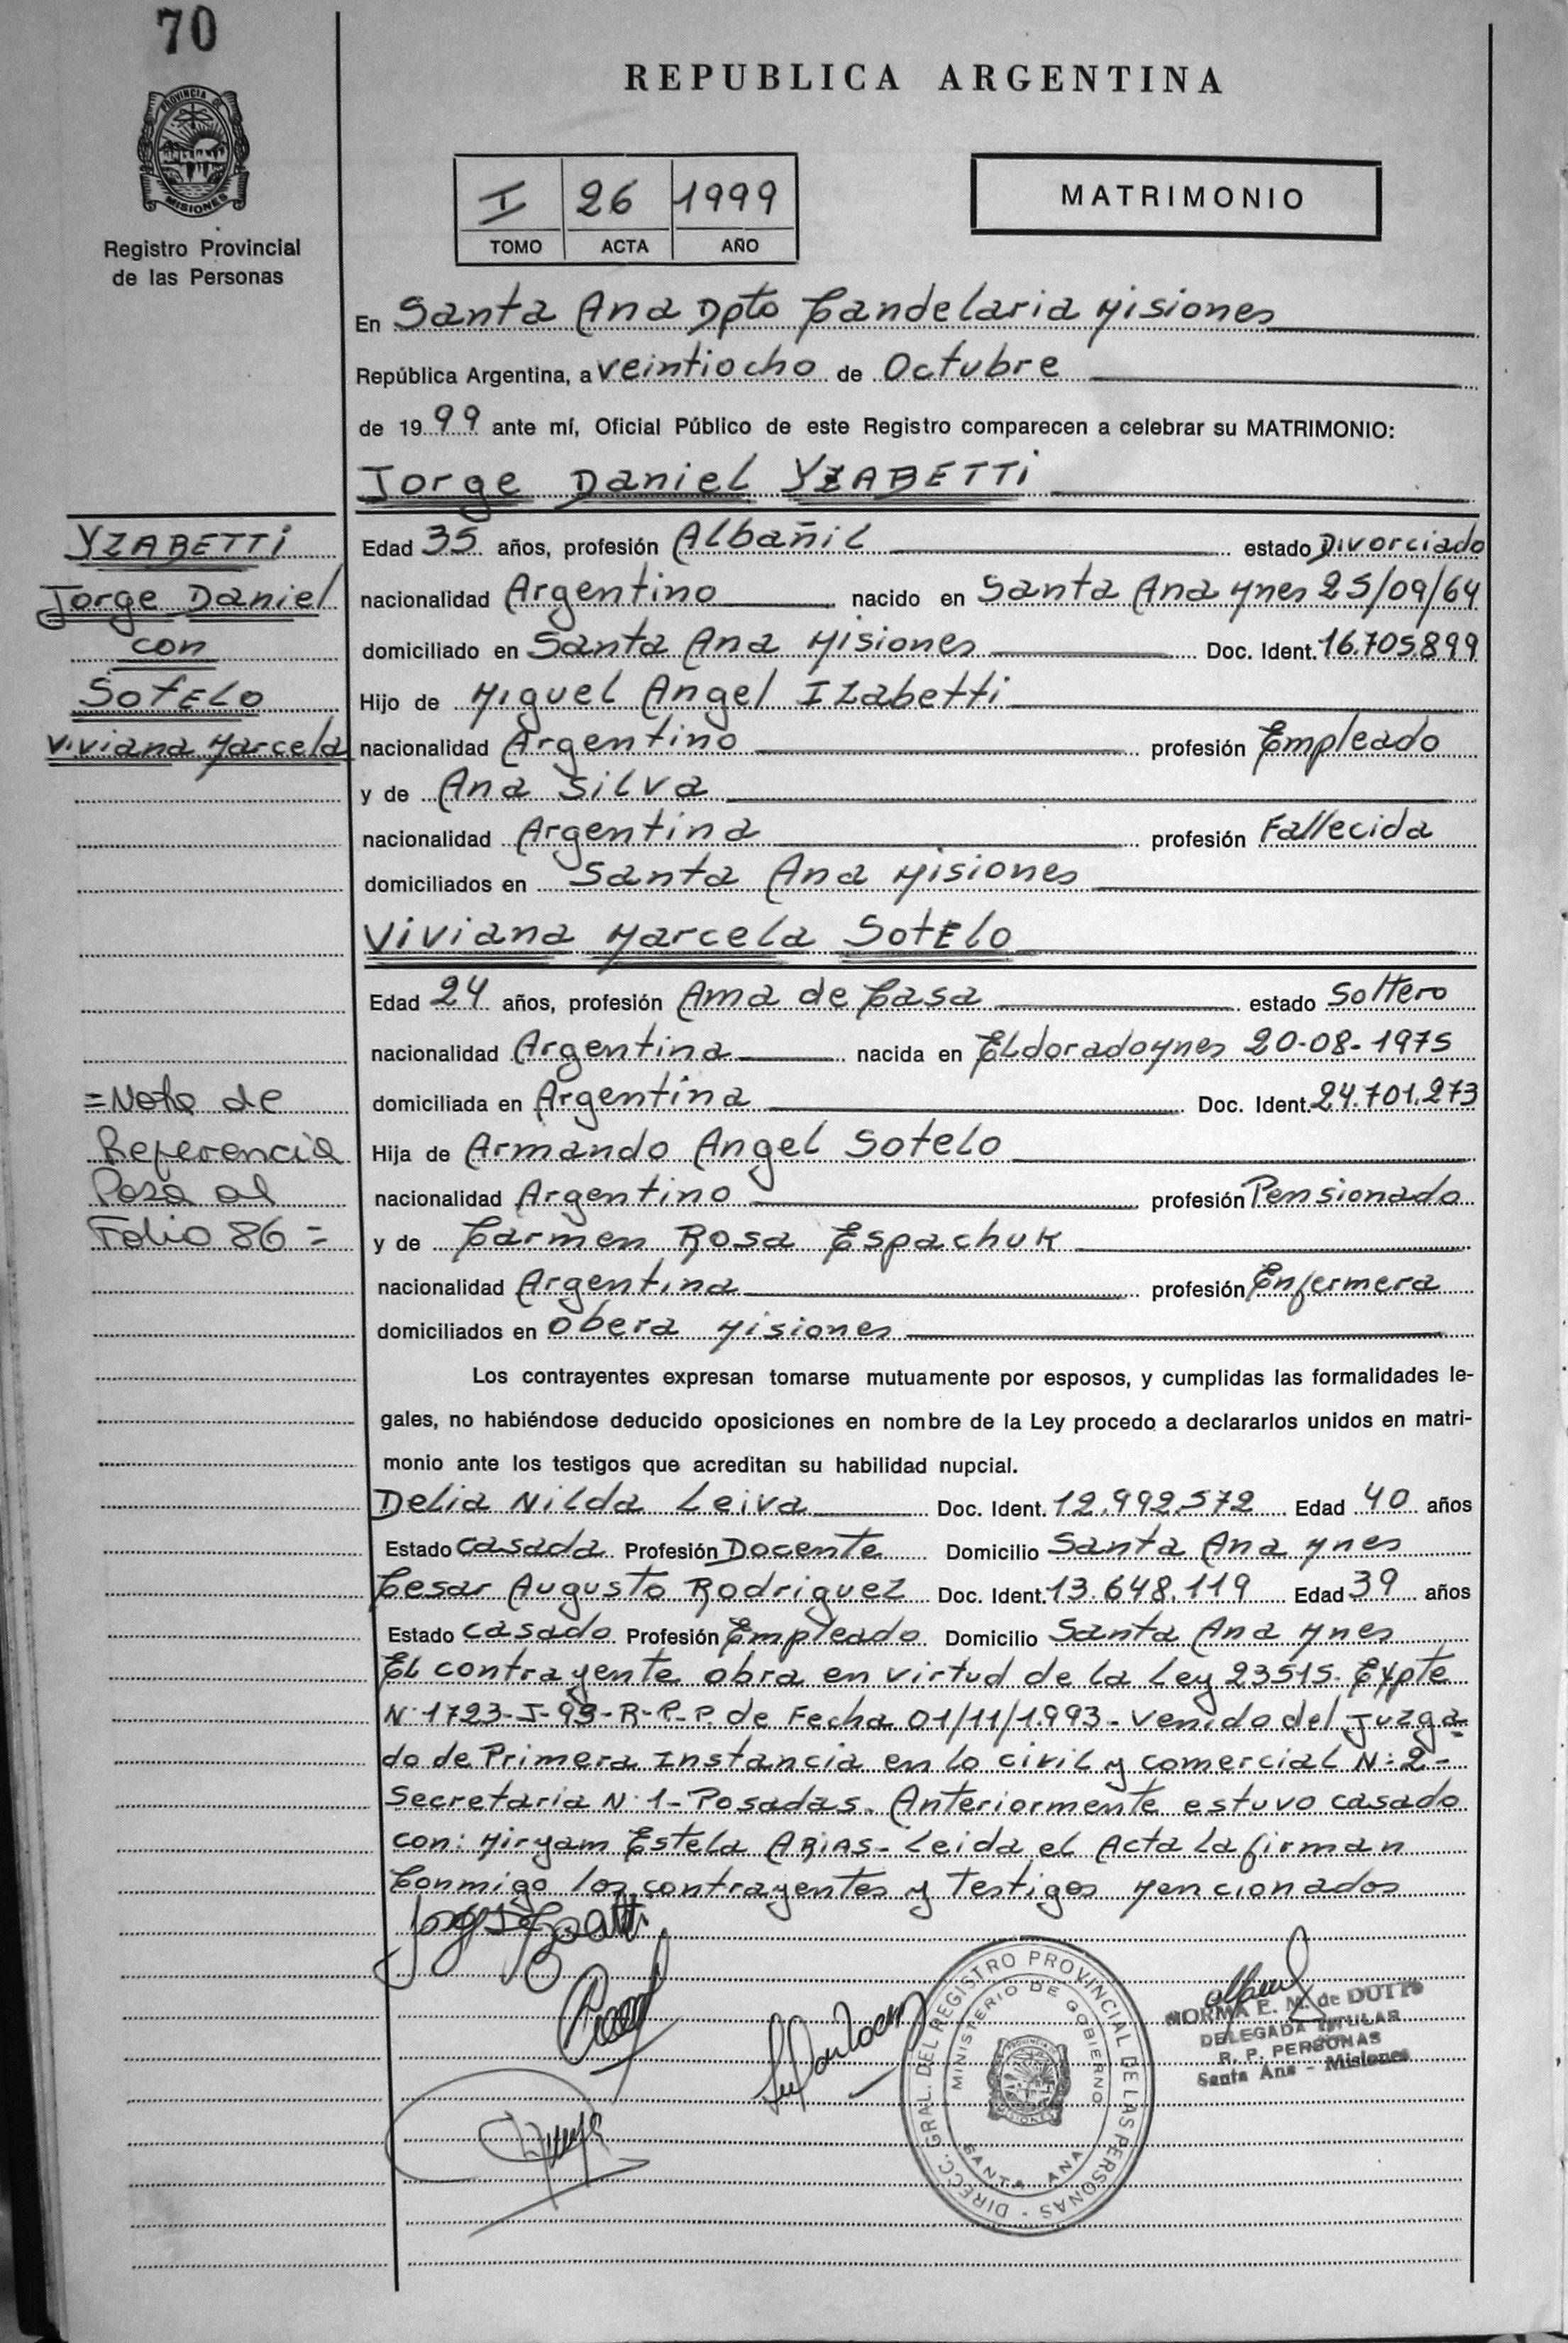 70
REPUBLICA ARGENTINA
PROVINCIA DE
MISIONES
Registro Provincial
de las Personas
I 26 1999
TOMO ACTA AÑO
MATRIMONIO
En Santa Ana Dpto Candelaria Misiones
República Argentina, a veintiocho de Octubre
de 1999 ante mí, Oficial Público de este Registro comparecen a celebrar su MATRIMONIO:
Jorge Daniel YZABETTi
YZABETTi
Jorge Daniel
con
SotELo
Viviana Marcela
Edad 35 años, profesión Albañil estado Divorciado
nacionalidad Argentino nacido en Santa Ana Mnes 25/09/64
domiciliado en Santa Ana Misiones Doc. Ident. 16.705.899
Hijo de Miguel Angel Izabetti
nacionalidad Argentino profesión Empleado
y de Ana Silva
nacionalidad Argentina profesión Fallecida
domiciliados en Santa Ana Misiones
Viviana Marcela SotElo
Edad 24 años, profesión Ama de Casa estado Soltero
nacionalidad Argentina nacida en Eldorado Mnes 20-08-1975
domiciliada en Argentina Doc. Ident. 24.701.273
Hija de Armando Angel Sotelo
nacionalidad Argentino profesión Pensionado
y de Carmen Rosa Espachuk
nacionalidad Argentina profesión Enfermera
domiciliados en Obera Misiones
=Nota de
Referencia
Pasa al
Folio 86=
Los contrayentes expresan tomarse mutuamente por esposos, y cumplidas las formalidades le-
gales, no habiéndose deducido oposiciones en nombre de la Ley procedo a declararlos unidos en matri-
monio ante los testigos que acreditan su habilidad nupcial.
Delia Nilda Leiva Doc. Ident. 12.992.572 Edad 40 años
Estado casada Profesión Docente Domicilio Santa Ana Mnes
Cesar Augusto Rodriguez Doc. Ident. 13.648.119 Edad 39 años
Estado casado Profesión Empleado Domicilio Santa Ana Mnes
El contrayente obra en virtud de la Ley 23515- Expte
N:1723-J-93-R-P-P. de Fecha 01/11/1.993- venido del Juzga-
do de Primera Instancia en lo civil y comercial N:2-
Secretaria N:1- Posadas. Anteriormente estuvo casado
con: Miryam Estela ARIAS- Leida el Acta la firman
Conmigo los contrayentes y Testigos Mencionados
DIRECC. GRAL. DEL REGISTRO PROVINCIAL DE LAS PERSONAS -
MINISTERIO DE GOBIERNO
SANTA ANA
NORMA E. M. de DUTTO
DELEGADA TITULAR
R. P. PERSONAS
Santa Ana - Misiones